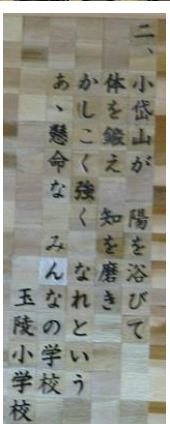 二、小岱山が　陽を浴びて
体を鍛え　知を磨き
かしこく強く　なれという
あゝ懸命な　みんなの学校
玉陵小学校